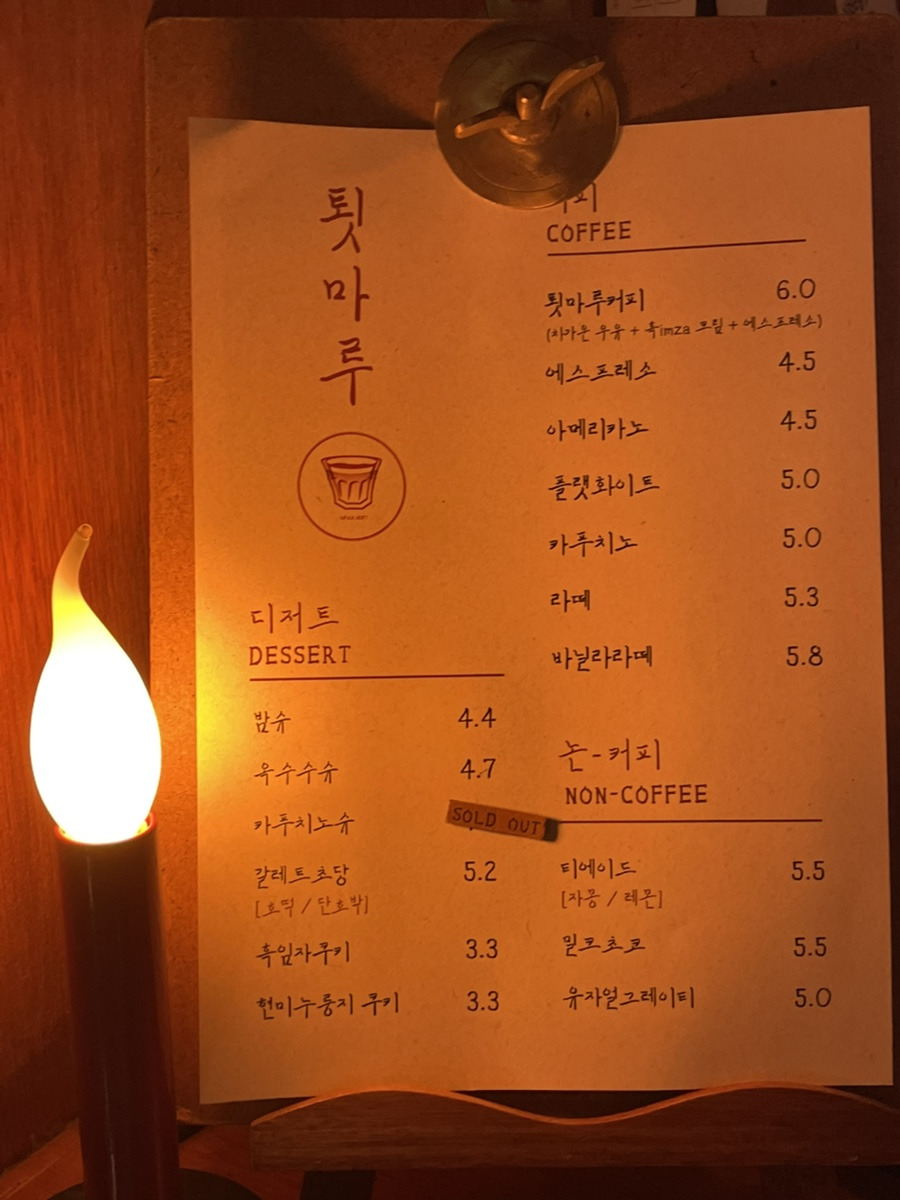 툇
마
루
디저트
DESSERT
밤슈 4.4
옥수수슈 4.7
카푸치노슈 SOLD OUT
갈레트초당 5.2
[호떡 / 단호박]
흑임자쿠키 3.3
현미누룽지 쿠키 3.3
커피
COFFEE
툇마루커피 6.0
(차가운 우유 + 흑imza 크림 + 에스프레소)
에스프레소 4.5
아메리카노 4.5
플랫화이트 5.0
카푸치노 5.0
라떼 5.3
바닐라라떼 5.8
논-커피
NON-COFFEE
티에이드 5.5
[자몽 / 레몬]
밀크초코 5.5
유자얼그레이티 5.0